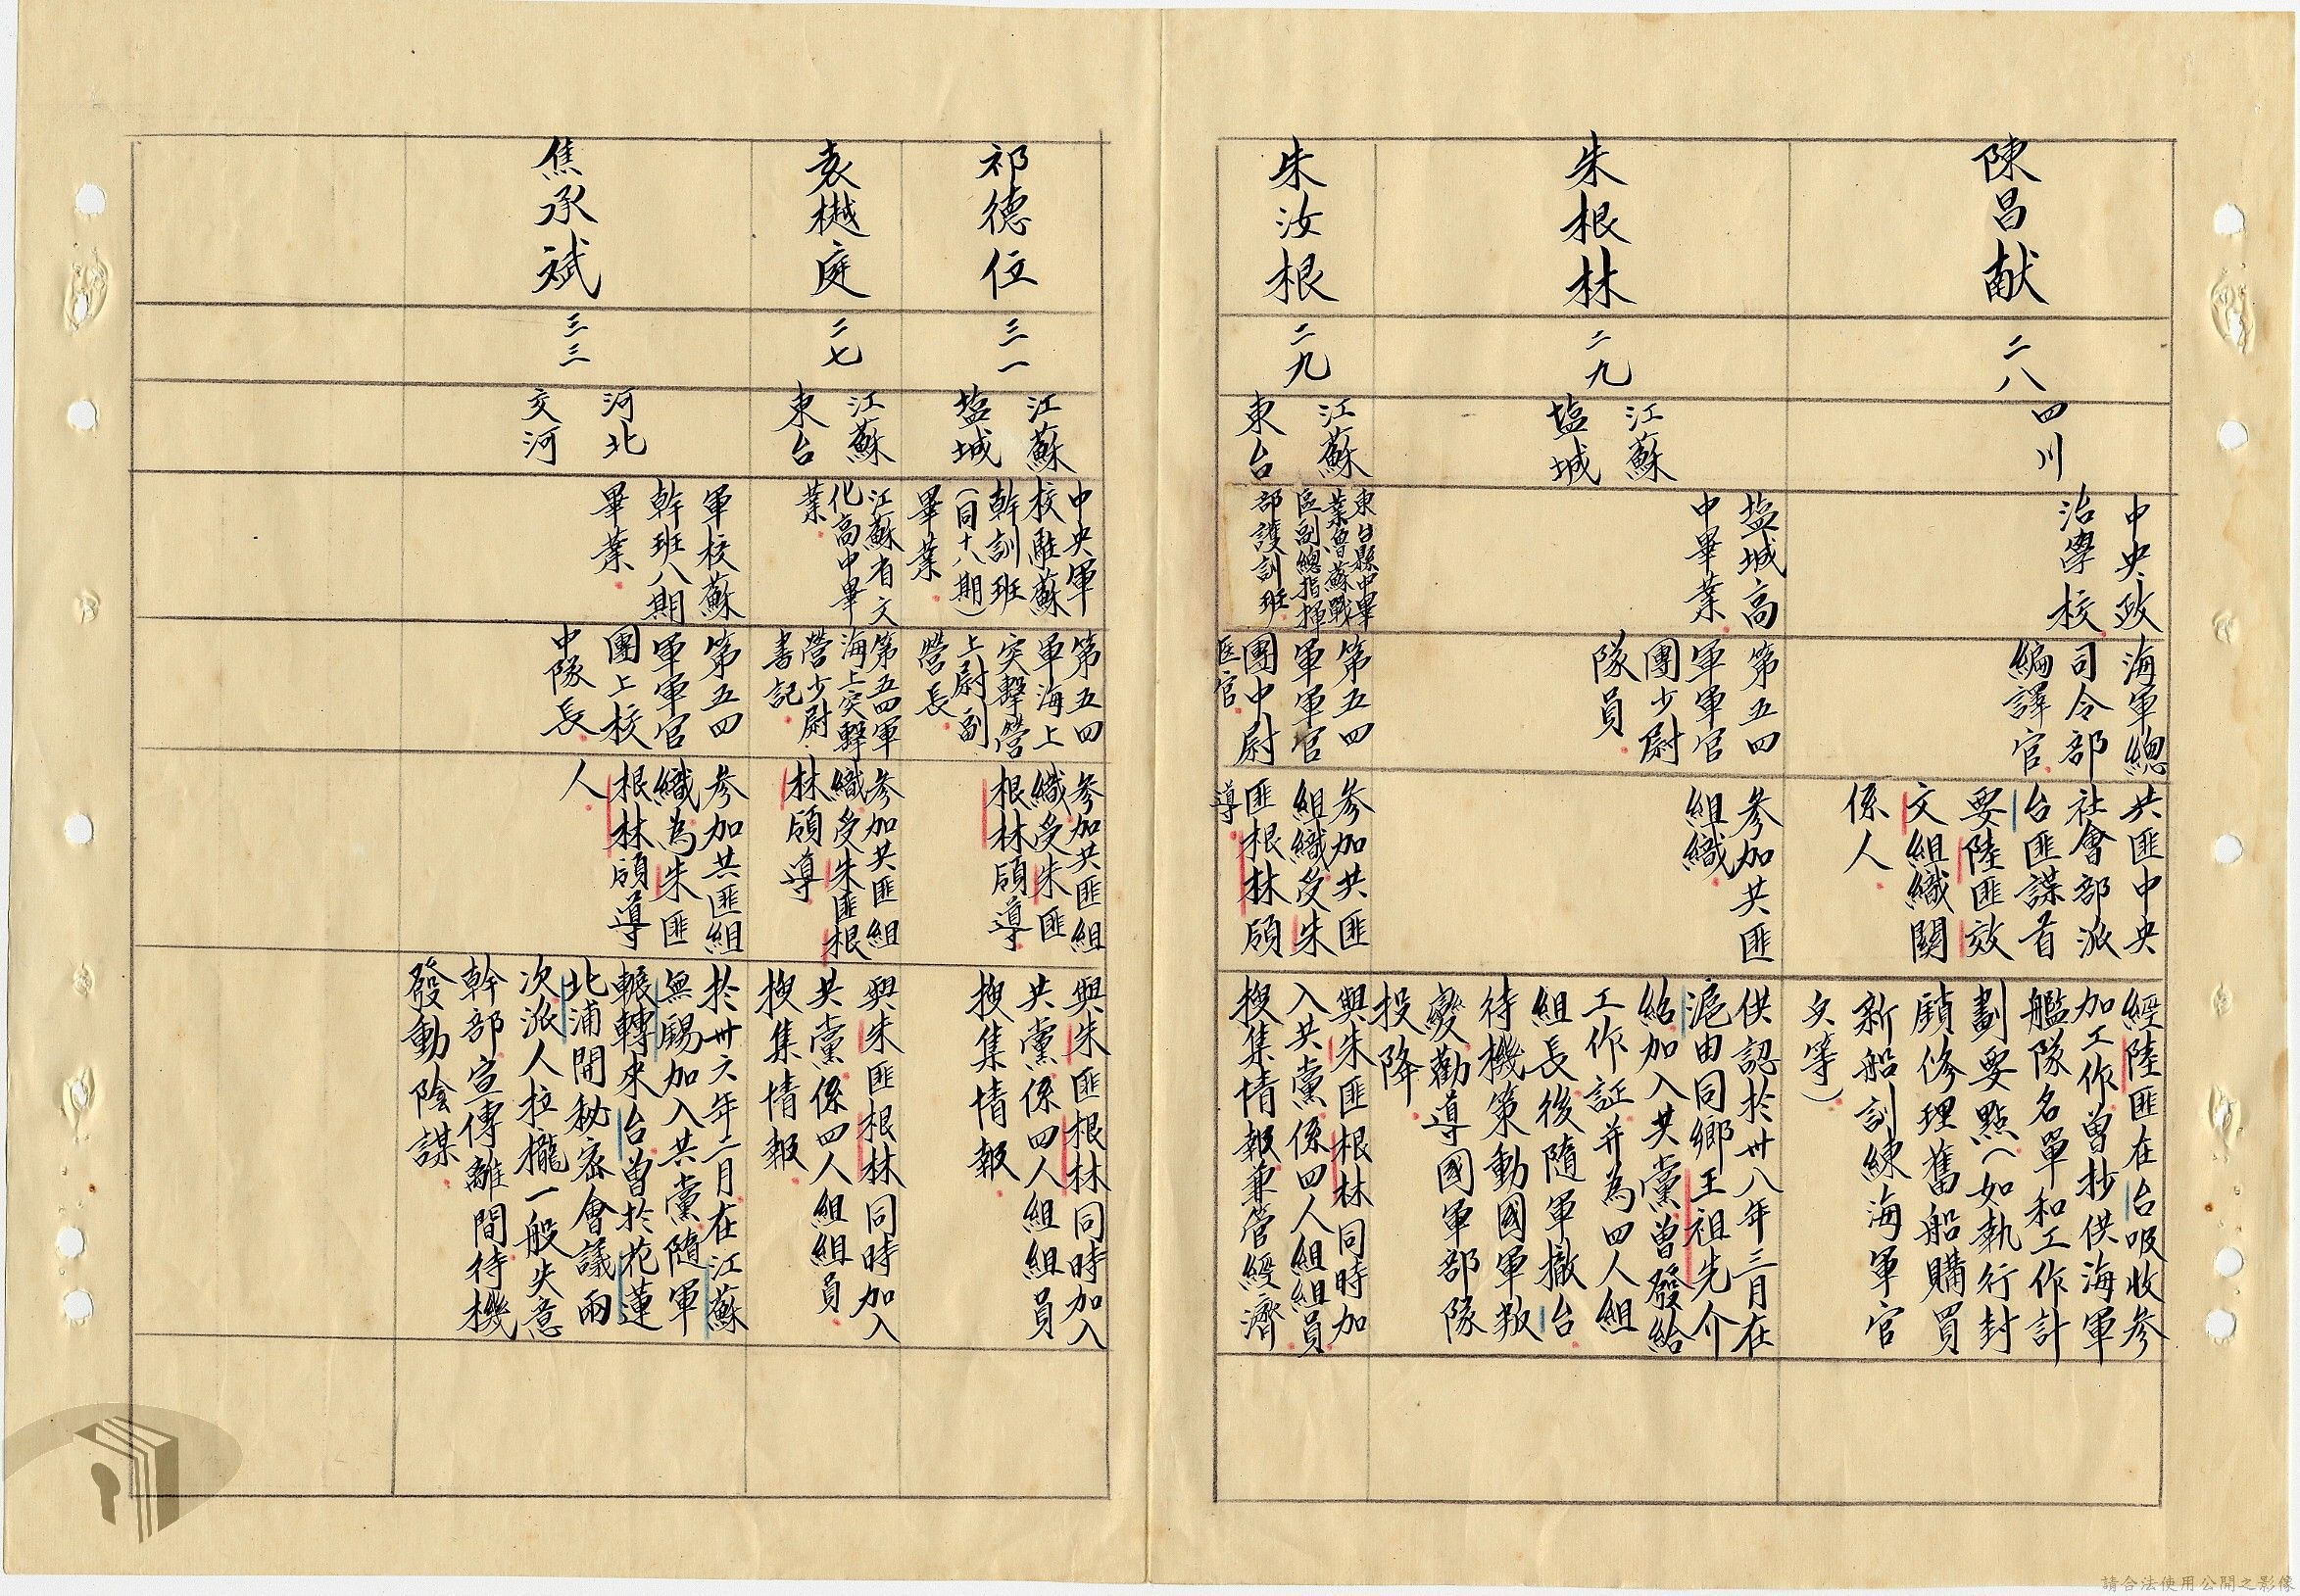 陳昌献
二八
四川
中央政
治學校
海軍總
司令部
編譯官
共匪中央
社會部派
台匪諜首
要陸匪效
文組織關
係人
經陸匪在台吸收參
加工作曾抄供海軍
艦隊名單和工作計
劃要點(如執行封
鎖修理舊船購買
新船訓練海軍官
兵等)
朱根林
二九
江蘇
塩城
塩城高
中畢業
第五四
軍軍官
團少尉
隊員
參加共匪
組織
供認於卅八年三月在
滬由同鄉王祖先介
紹加入共黨曾發給
工作証并為四人組
組長後隨軍撤台
待機策動國軍叛
變勸導國軍部隊
投降
朱汝根
二九
江蘇
東台
東台縣中畢
業魯蘇戰
區副總指揮
部護訓班
第五四
軍軍官
團中尉
医官
參加共匪
組織受朱
匪根林領
導
與朱匪根林同時加
入共黨係四人組組員
搜集情報兼管經濟
祁德位
三一
江蘇
塩城
中央軍
校駐蘇
幹訓班
(同十八期)
畢業
第五四
軍海上
突擊營
上尉副
營長
參加共匪組
織受朱匪
根林領導
與朱匪根林同時加入
共黨係四人組組員
搜集情報
袁樾庭
二七
江蘇
東台
江蘇省文
化高中畢
業
第五四軍
海上突擊
營少尉
書記
參加共匪組
織受朱匪根
林領導
與朱匪根林同時加入
共黨係四人組組員
搜集情報
焦承斌
三三
河北
交河
軍校蘇
幹班八期
畢業
第五四
軍軍官
團上校
中隊長
參加共匪組
織為朱匪
根林領導
人
於卅六年二月在江蘇
無錫加入共黨隨軍
輾轉來台曾於花蓮
北浦開秘密會議兩
次派人拉攏一般失意
幹部宣傳離間待機
發動陰謀
請合法使用公開之影像